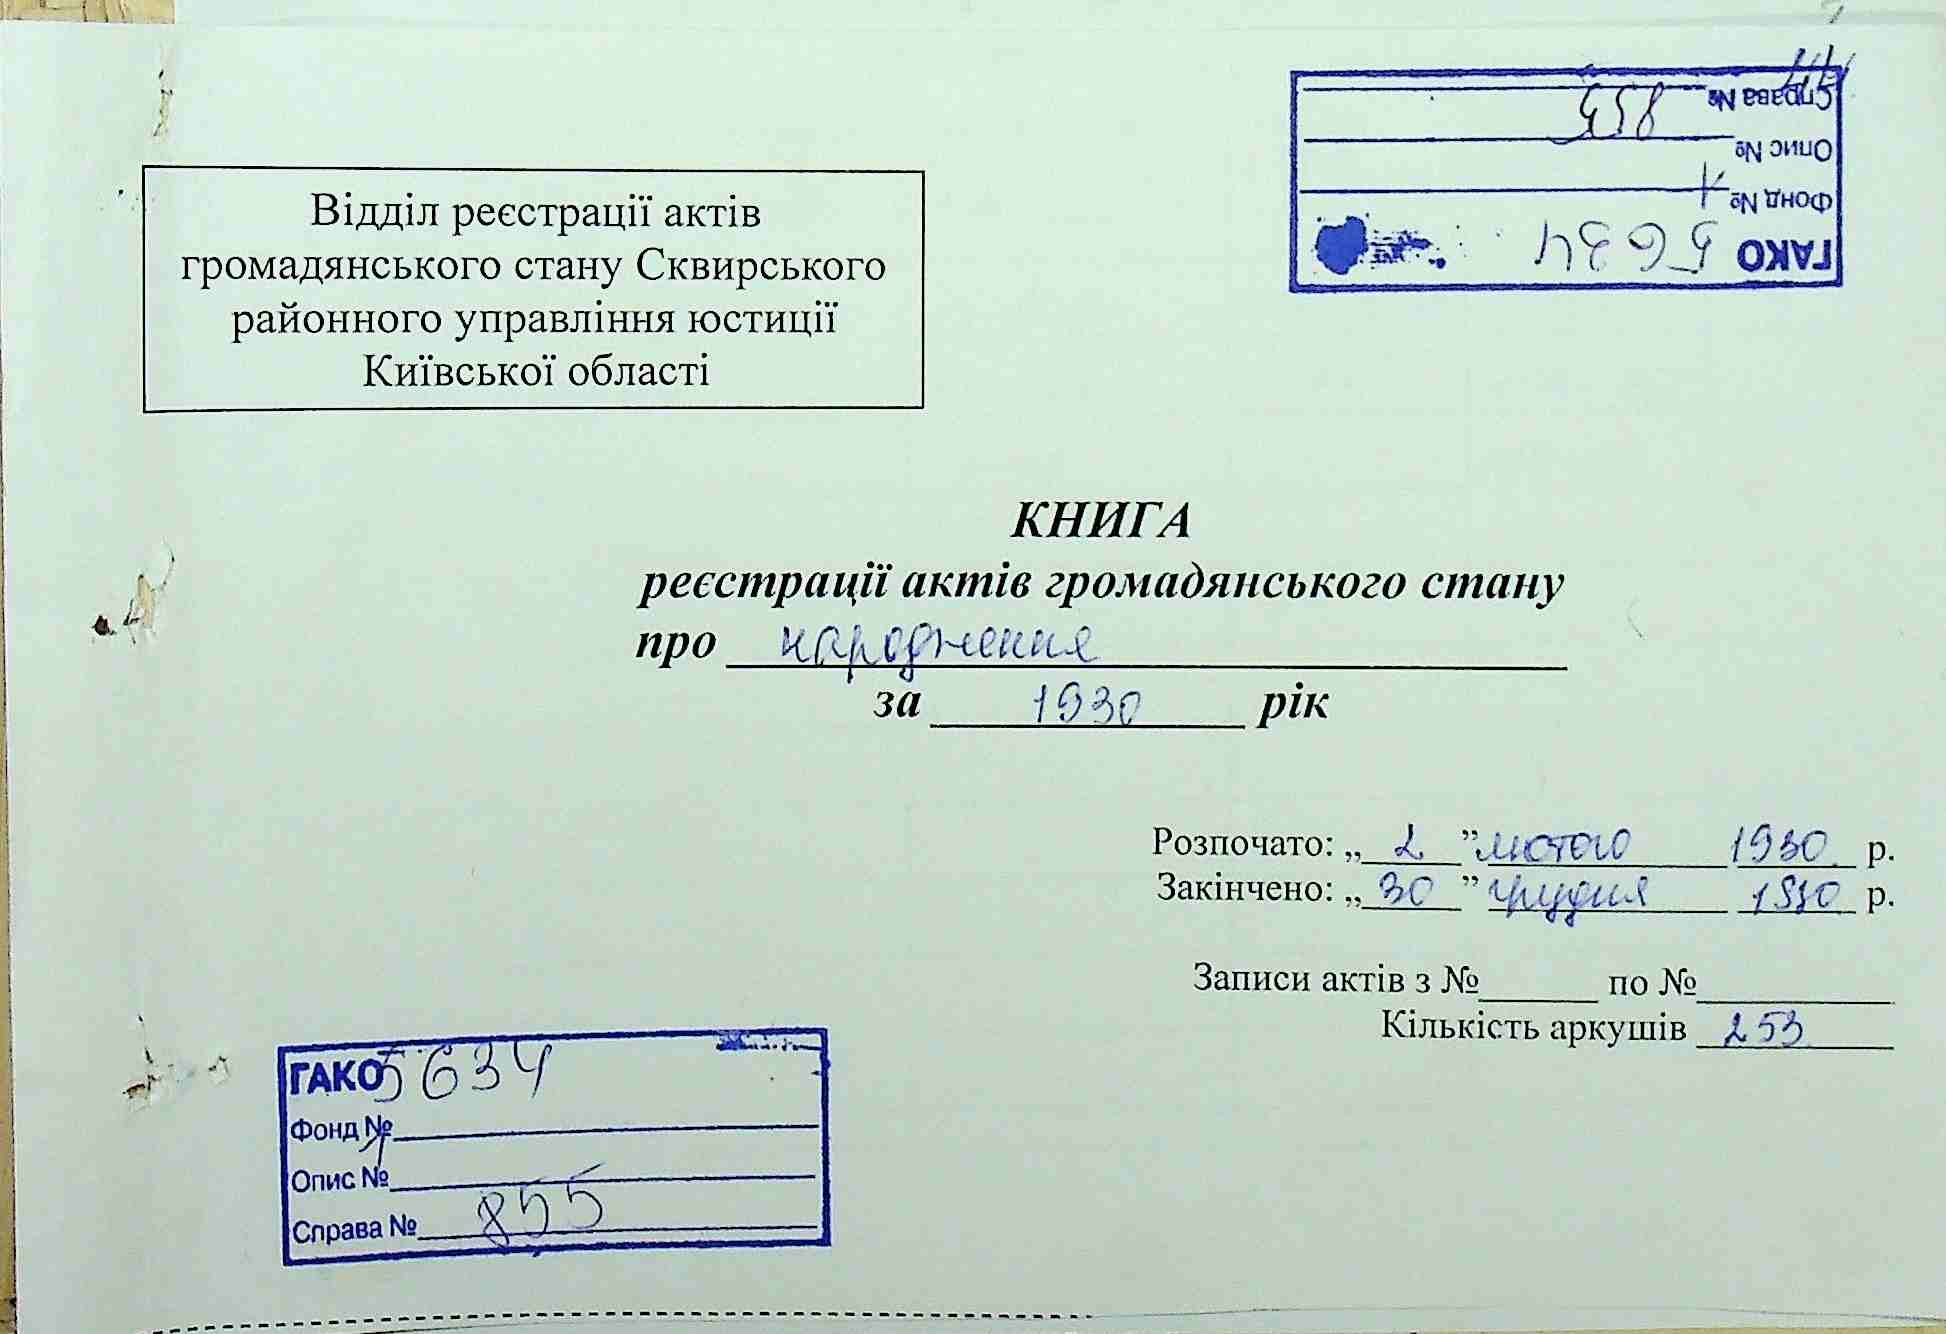 ГАКО 5634
Фонд № 1
Опис №
Справа № 855
Відділ реєстрації актів
громадянського стану Сквирського
районного управління юстиції
Київської області
КНИГА
реєстрації актів громадянського стану
про народження
за 1930 рік
Розпочато: „ 2 ” лютого 1930 р.
Закінчено: „ 30 ” грудня 1930 р.
Записи актів з № по №
Кількість аркушів 253
ГАКО 5634
Фонд №
Опис № 1
Справа № 855